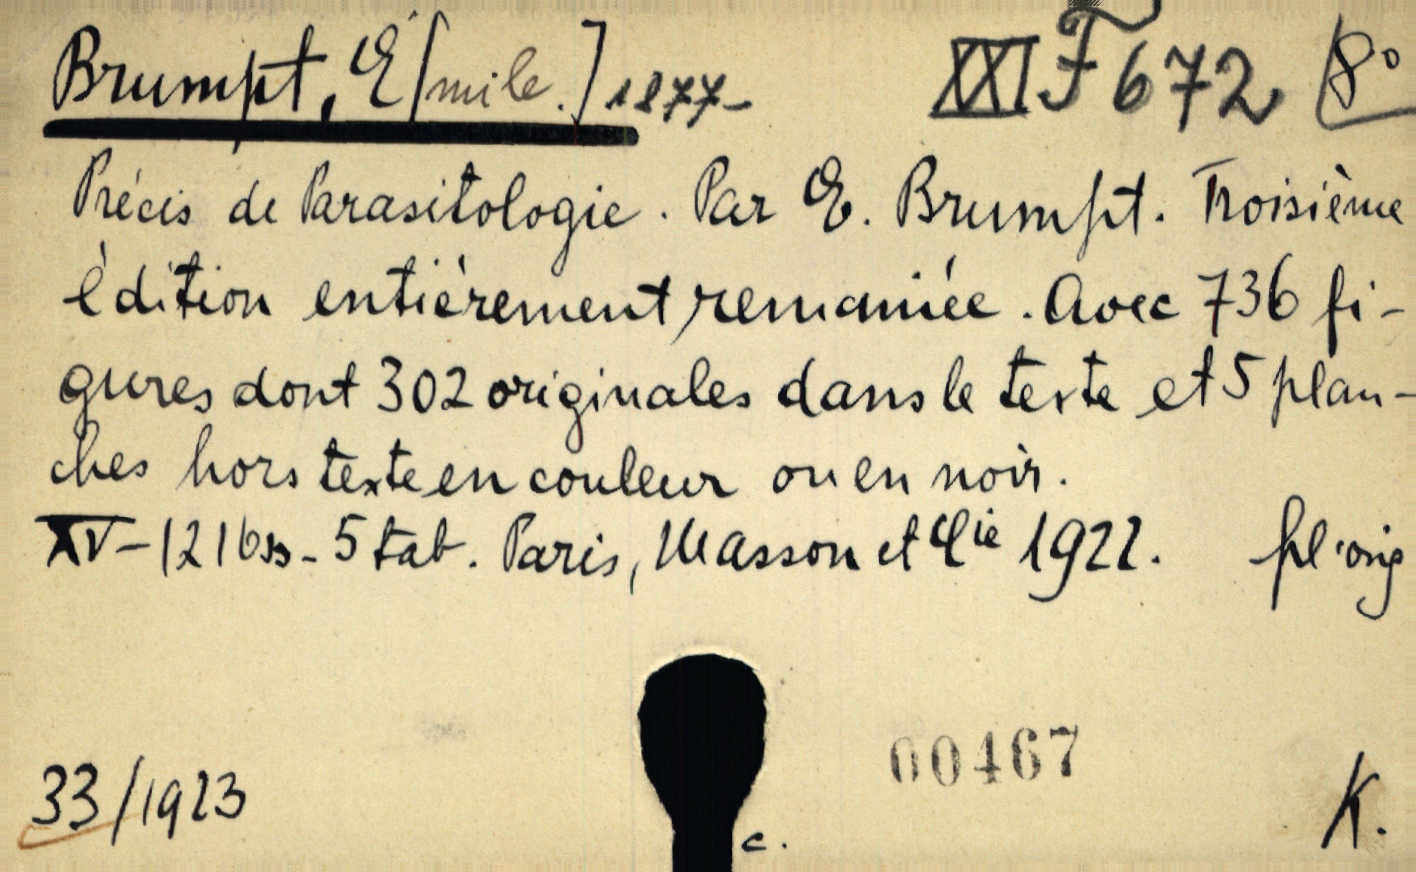 Brumpt, E[mile.] 1877- XXI F 672 8°
Précis de Parasitologie. Par E. Brumpt. Troisième
édition entièrement remaniée. Avec 736 fi-
gures dont 302 originales dans le texte et 5 plan-
ches hors texte en couleur ou en noir.
XV-1216 ss - 5 tab. Paris, Masson et Cie 1922. pl. orig
00467
33/1923 K.
c.